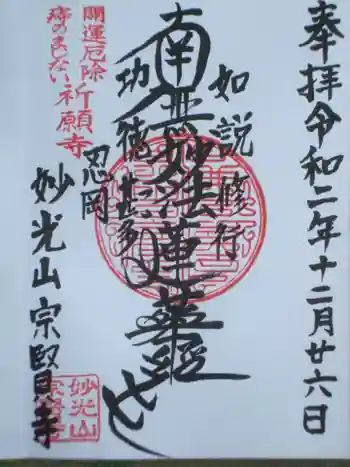 奉拝令和二年十二月廿六日
如説修行
南無妙法蓮華経
功徳甚多
也
忍岡
開運厄除
痔のまじない祈願寺
妙光山宗賢寺
妙光山
宗賢寺